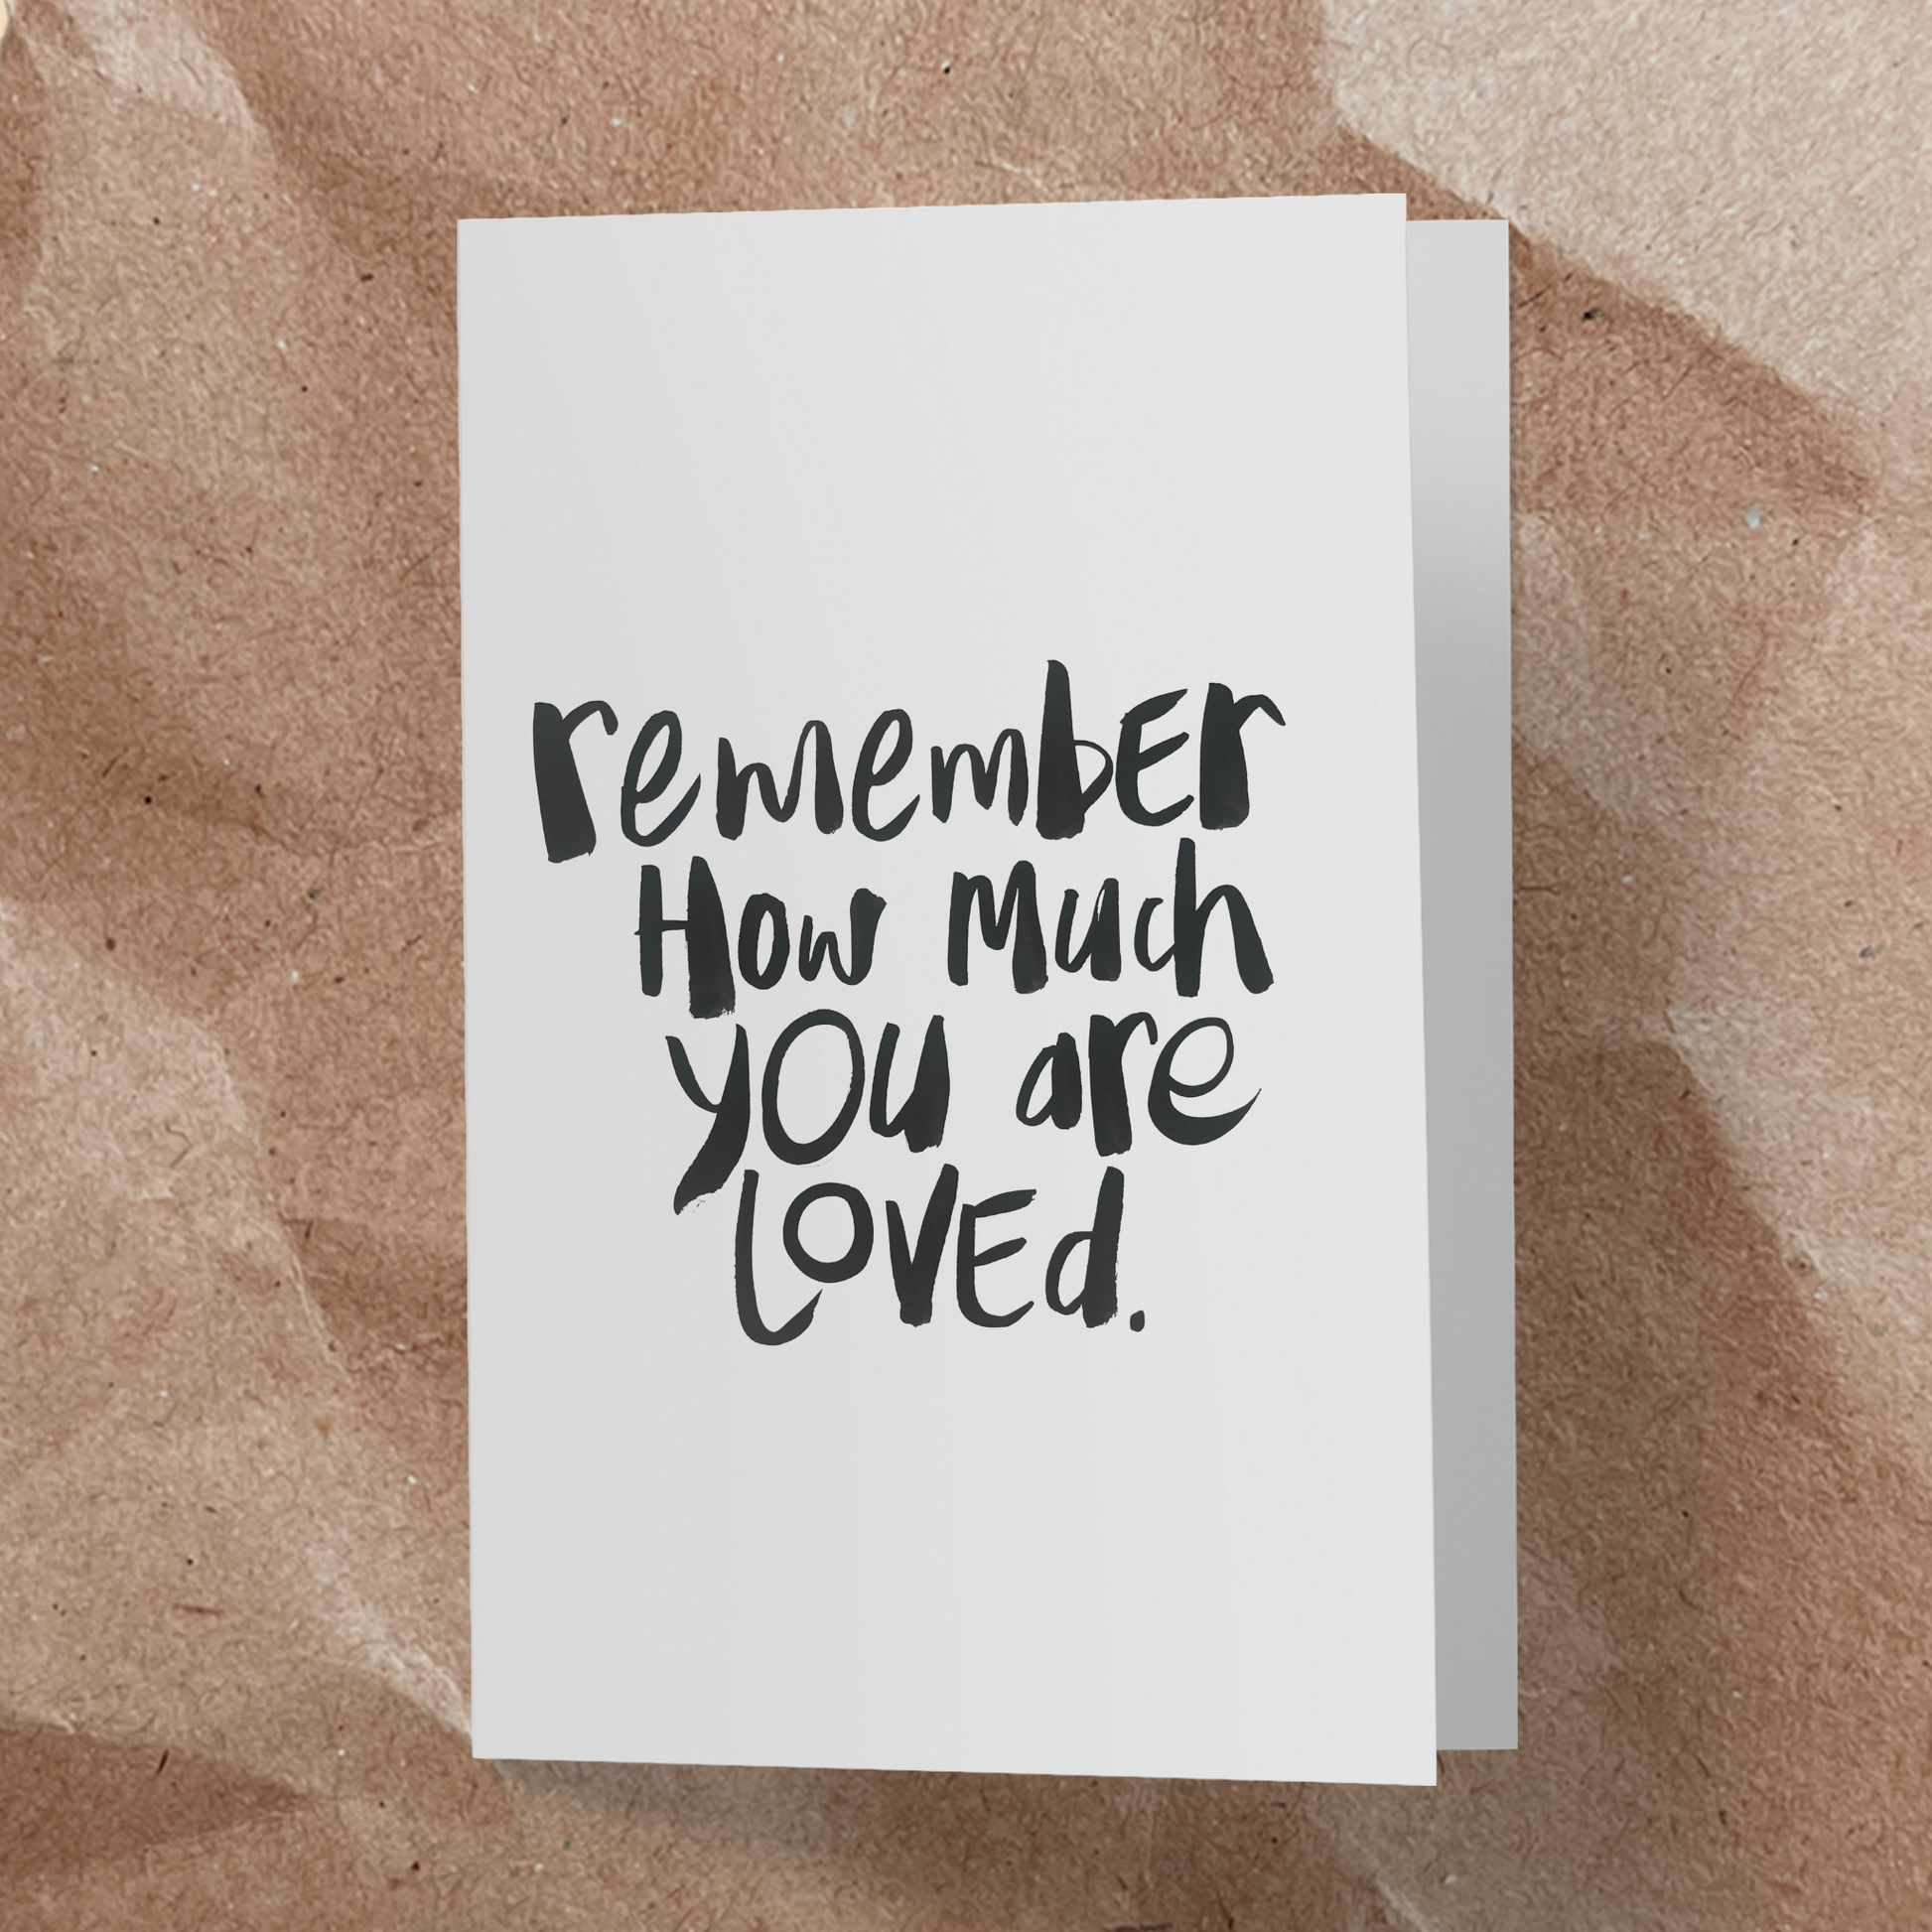 remembEr
How Much
you are
LOVEd.